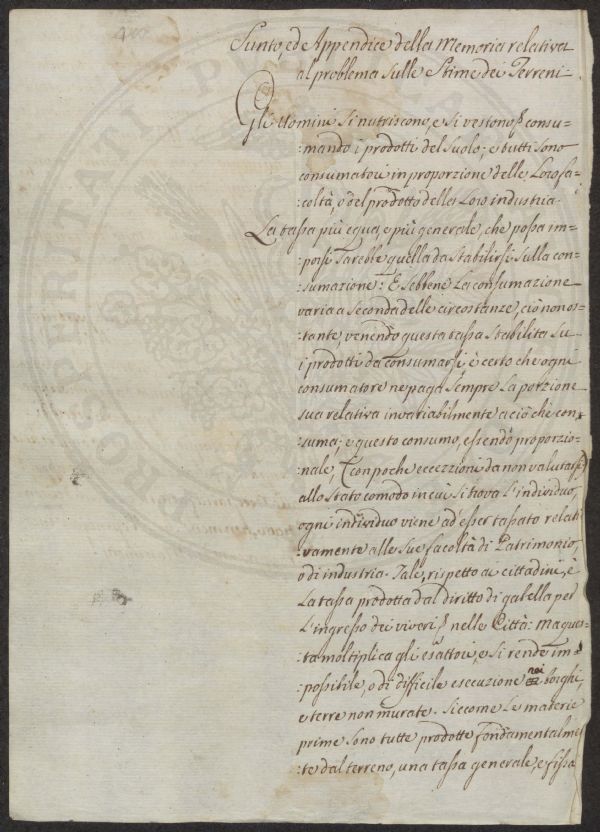 Sunto, ed Appendice della Memoria relativa
al problema sulle Stime dei Terreni
Gli Uomini si nutriscono, e si vestono consu=
=mando i prodotti del Suolo; e tutti sono
consumatori in proporzione delle Loro fa=
=coltà, o del prodotto della Loro industria.
La tassa più equa, e più generale, che possa im=
=porsi sarebbe quella da stabilirsi sulla con=
=sumazione: E sebbene La consumazione
varia a seconda delle circostanze, ciò non os=
=tante, venendo questa tassa stabilita su
i prodotti da consumarsi, è certo che ogni
consumatore ne paga sempre La porzione
sua relativa invariabilmente a ciò che con=
suma; e questo consumo, essendo proporzio=
=nale, (con poche eccezzioni da non valutarsi)
allo stato comodo in cui si trova l'individuo,
ogni individuo viene ad esser tassato relati
=vamente alle sue facoltà di Patrimonio,
o di industria. Tale, rispetto ai cittadini, è
La tassa prodotta dal diritto di gabella per
l'ingresso dei viveri nelle Città: ma ques=
=ta moltiplica gli esattori, e si rende im=
=possibile, o di difficile esecuzione nei borghi,
e terre non murate. Siccome Le materie
prime sono tutte prodotte fondamentalmē
=te dal terreno, una tassa generale, e fissa
PROSPERITATI PUBLICAE